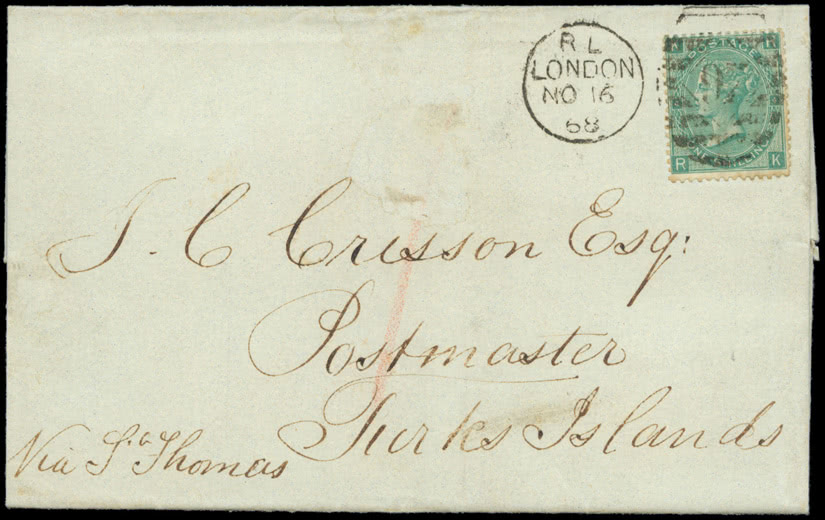 R L
LONDON
NO 16
68
K R
POSTAGE
R K
J. C Crisson Esq:
Postmaster
Turks Islands
Via St Thomas